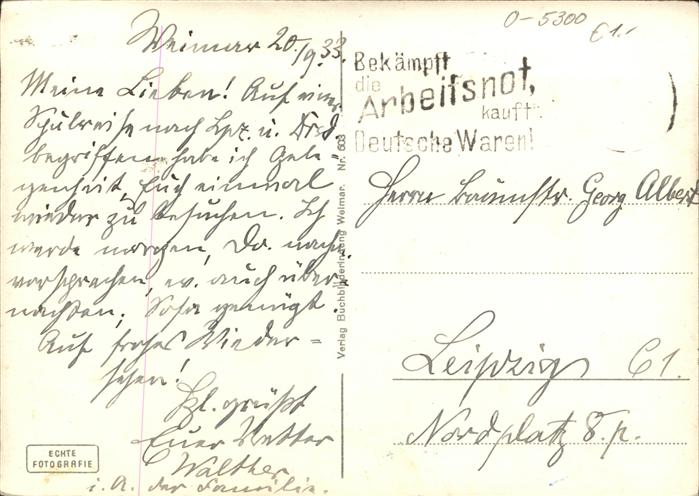 Weimar 20./9.33.
Meine Lieben! Auf einer
Schulreise nach Lpz. u. Drsd.
begriffen habe ich Gele-
genheit, Euch einmal
wieder zu besuchen. Ich
werde morgen, Do. nach.
vorsprechen, ev. auch über-
nachten; Sofa genügt.
Auf frohes Wieder=
sehen!
Hzl. grüßt
Euer Vetter
Walther
i. A. der Familie.
ECHTE
FOTOGRAFIE
Verlag Buchbinderinnung Weimar. Nr. 603
0-5300
€1.-
Bekämpft
die
Arbeitsnot,
kauft
Deutsche Waren!
Herrn Baumstr. Georg Albert
Leipzig C1.
Nordplatz 8. p.